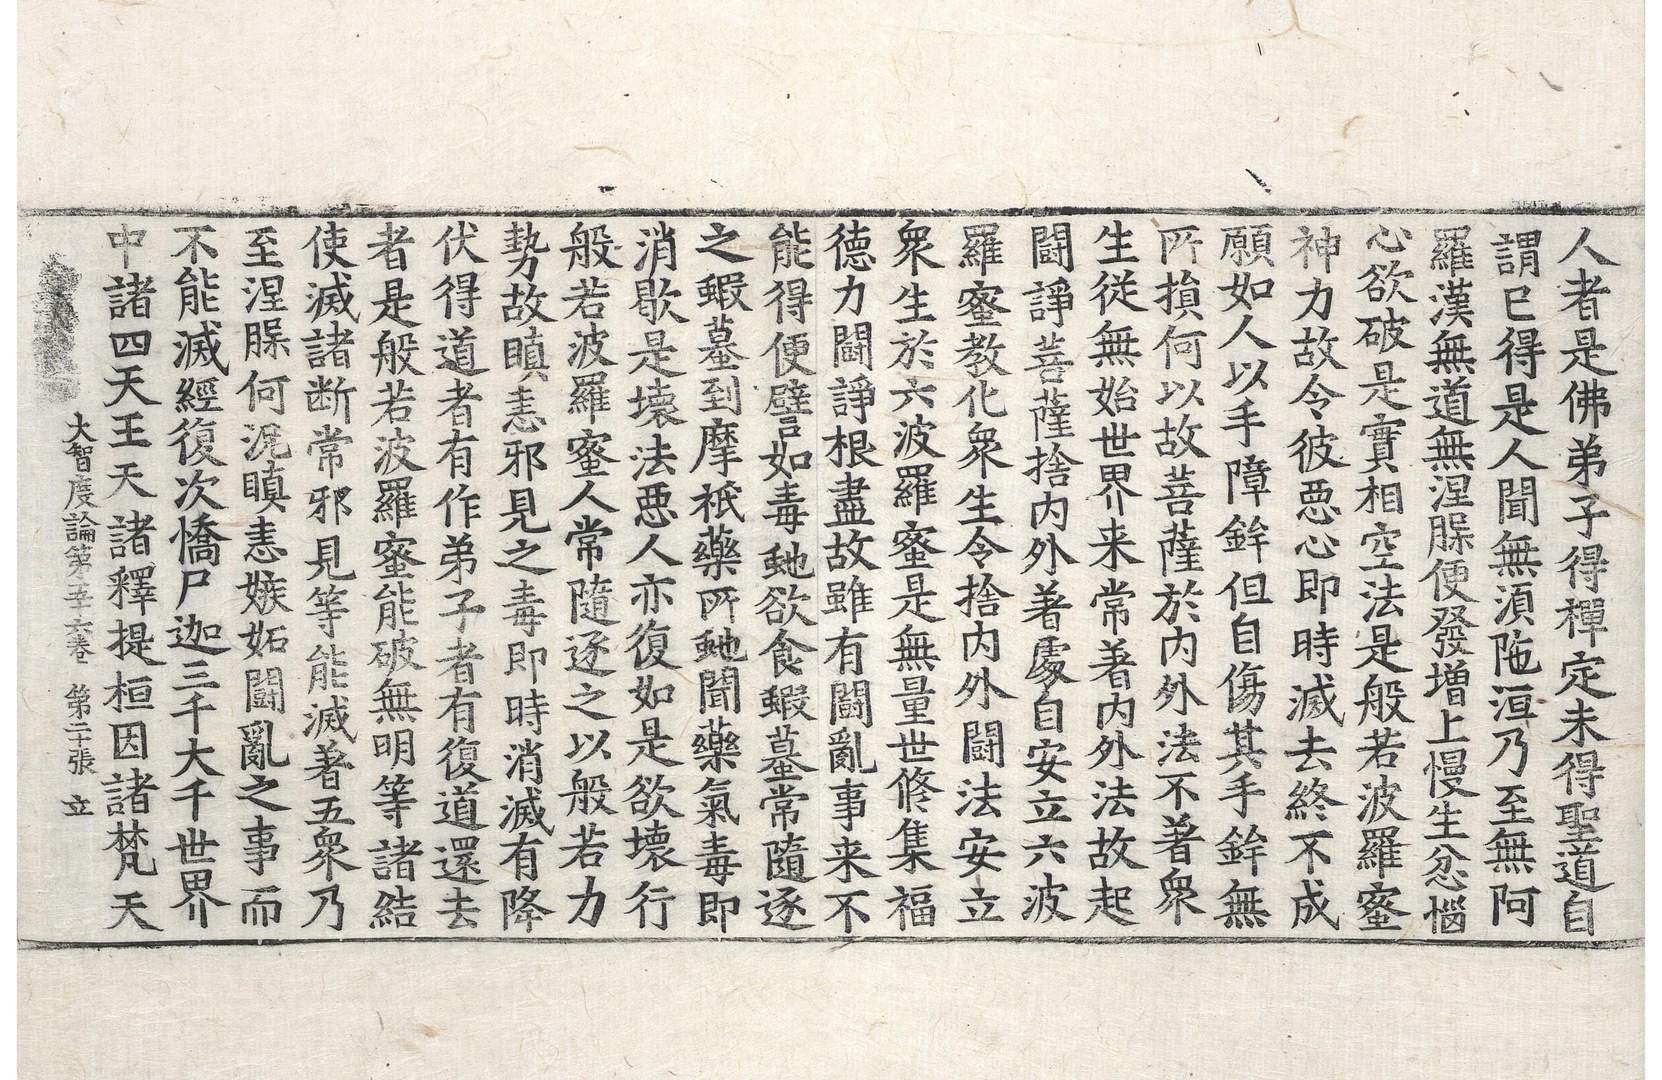 人者是佛弟子得禪定未得聖道自
謂已得是人聞無湏陁洹乃至無阿
羅漢無道無涅槃便發增上慢生忿惱
心欲破是實相空法是般若波羅蜜
神力故令彼惡心即時滅去終不成
願如人以手障鉾但自傷其手鉾無
所損何以故菩薩於內外法不著衆
生從無始世界来常著內外法故起
鬪諍菩薩捨內外著處自安立六波
羅蜜教化衆生令捨內外鬪法安立
衆生於六波羅蜜是無量世修集福
德力鬪諍根盡故雖有鬪亂事来不
能得便譬如毒虵欲食蝦蟇常隨逐
之蝦蟇到摩祇藥所虵聞藥氣毒即
消歇是壞法惡人亦復如是欲壞行
般若波羅蜜人常隨逐之以般若力
勢故瞋恚邪見之毒即時消滅有降
伏得道者有作弟子者有復道還去
者是般若波羅蜜能破無明等諸結
使滅諸断常邪見等能滅著五衆乃
至涅槃何況瞋恚嫉妬鬪亂之事而
不能滅經復次憍尸迦三千大千世界
中諸四天王天諸釋提桓因諸梵天
大智度論第五十六卷 第二十張 立